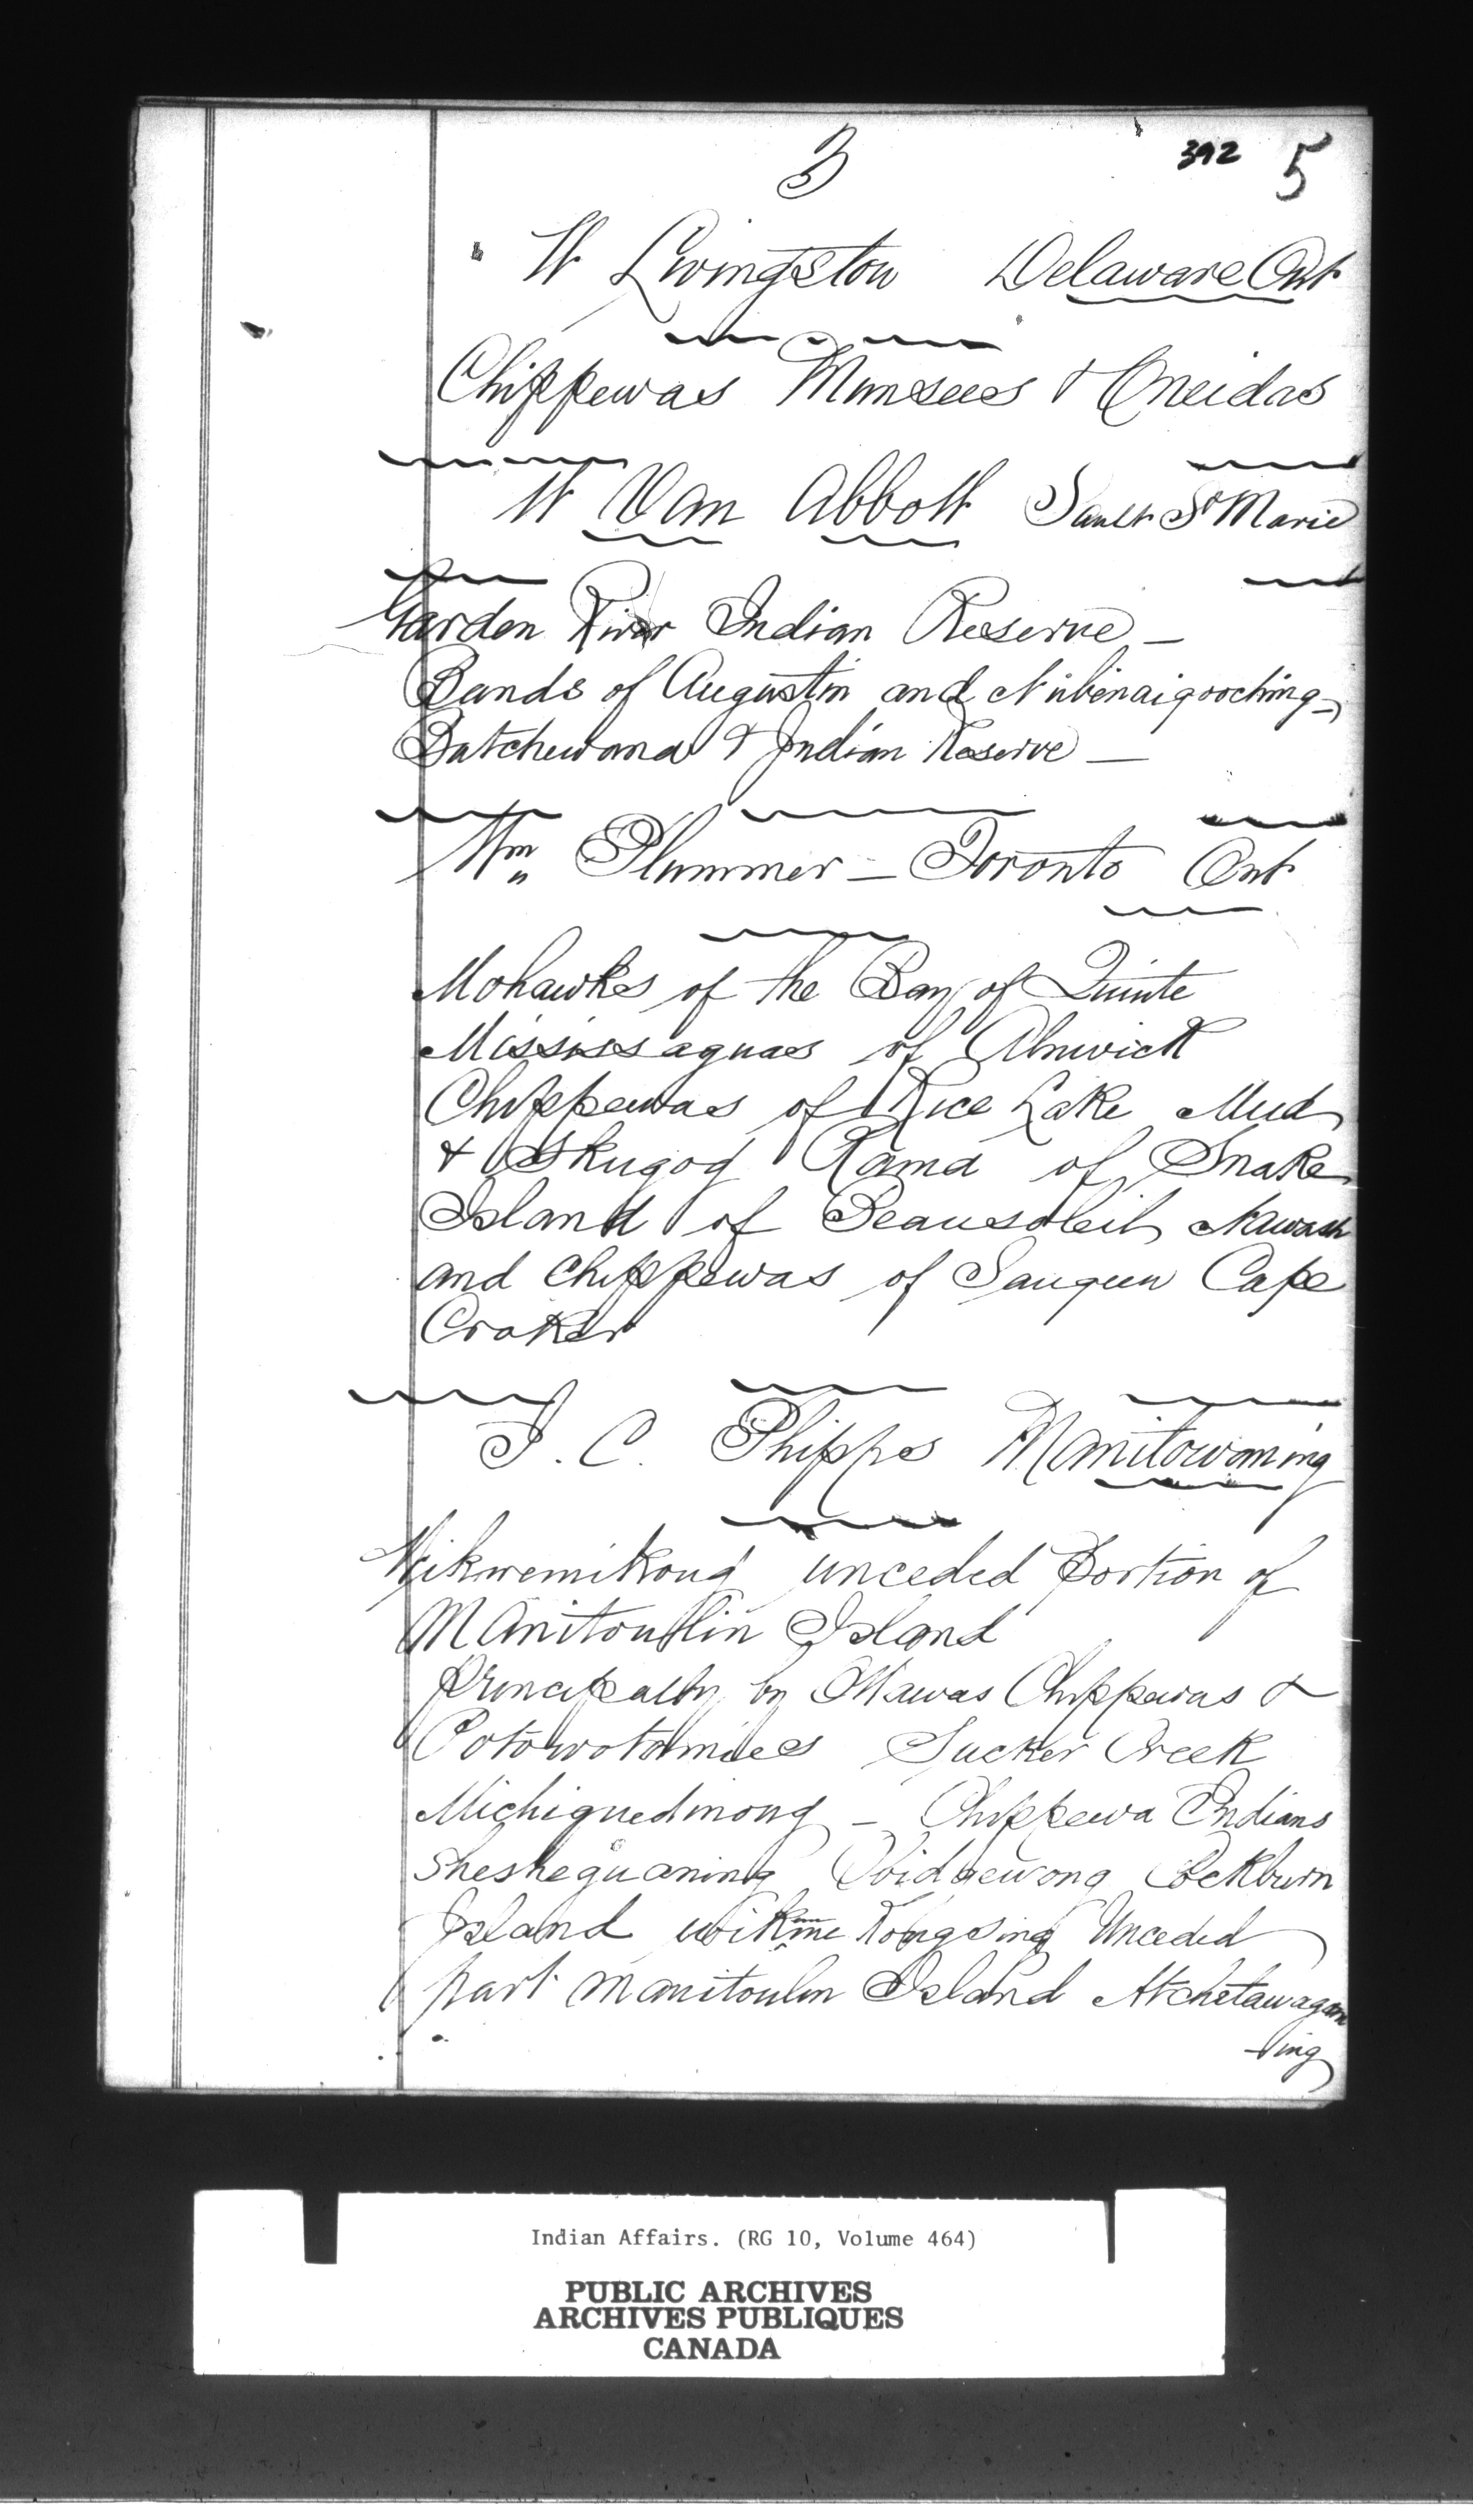 3
392 5
W Livingston Delaware Ont
Chippewas Munsees & Oneidas
W Van Abbott Sault St Marie
Garden River Indian Reserve –
Bands of Augustin and Nubenaigooching –
Batchewana & Indian Reserve –
Wm Plummer – Toronto Ont
Mohawks of the Bay of Quinte
Mississaguas of Alnwick
Chippewas of Rice Lake Mud
& Skugog Rama of Snake
Island of Beausoleil Nawash
and Chippewas of Saugeen Cape
Croker
J. C. Phipps Manitowaning
Wikwemikong unceded portion of
Manitoulin Island
principally by Ottawas Chippewas &
Potowotomies Sucker Creek
Michiguedinong – Chippewa Indians
Sheshequaning Obidgewong Cockburn
Island Unceded
part Manitoulin Island Atchetawagan
-ing
Indian Affairs. (RG 10, Volume 464)
PUBLIC ARCHIVES
ARCHIVES PUBLIQUES
CANADA